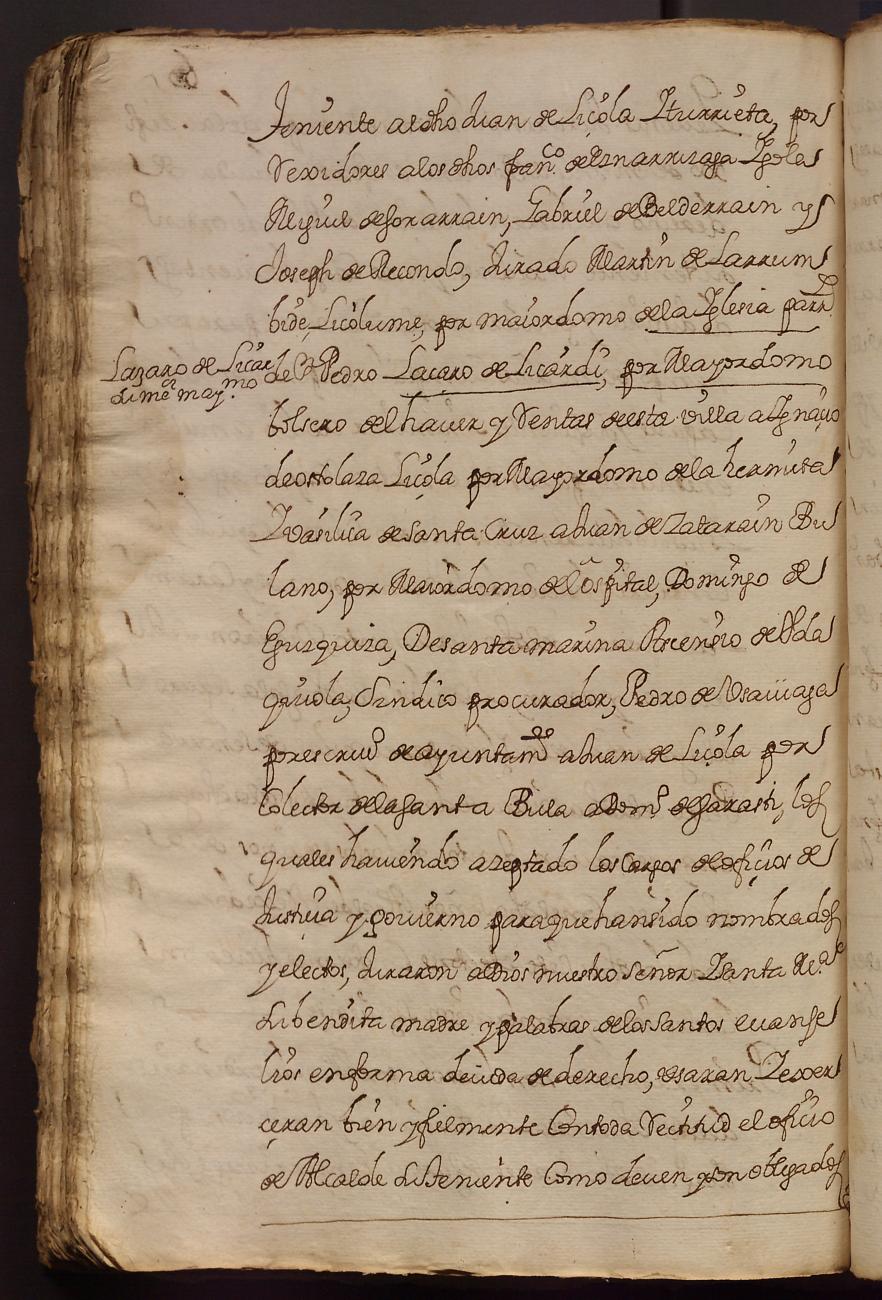 Jeniente al dho Juan de Liçola Yturrieta, por
Rexidores a los dhos fran.co de Eznarrizaga Ygola
Miguel de Gorarrain, Gabriel de Belderrain y
Joseph de Recondo, Jurado Martin de Larrum
bide, Liçolume, por maiordomo de la Yglesia parr.l
de S.n Pedro Laçaro de Liçardi, por Mayordomo
Lazaro de Liçar
di me.a may.mo
bolsero del haver y Rentas de esta villa a Ygnaçio
de ostolaza Liçola por Mayordomo de la hermita
Y Vasilica de Santa Cruz a Juan de Zatarain Bu
lano, por Maiordomo del ospital, Domingo de
Eguzquiza, De santa marina Ascensio de Alda
quiola, Sindico procurador, Pedro de Vsaviaga
por escriu.o de ayuntam.to a Juan de Liçola por
Colector de la Santa Bula a Dom.o de Garasti, los
quales haviendo azeptado los cargos de ofiçios de
Justiçia y govierno para que han sido nombrados
y electos, Juraron a Dios nuestro señor Y santa Ma.a
su bendita madre y palabras de los santos evange
lios en forma devida de derecho, vsaran Y exer
çeran bien y fielmente Con toda Rectitud el ofiçio
de Alcalde su Jeniente Como deven y son obligados